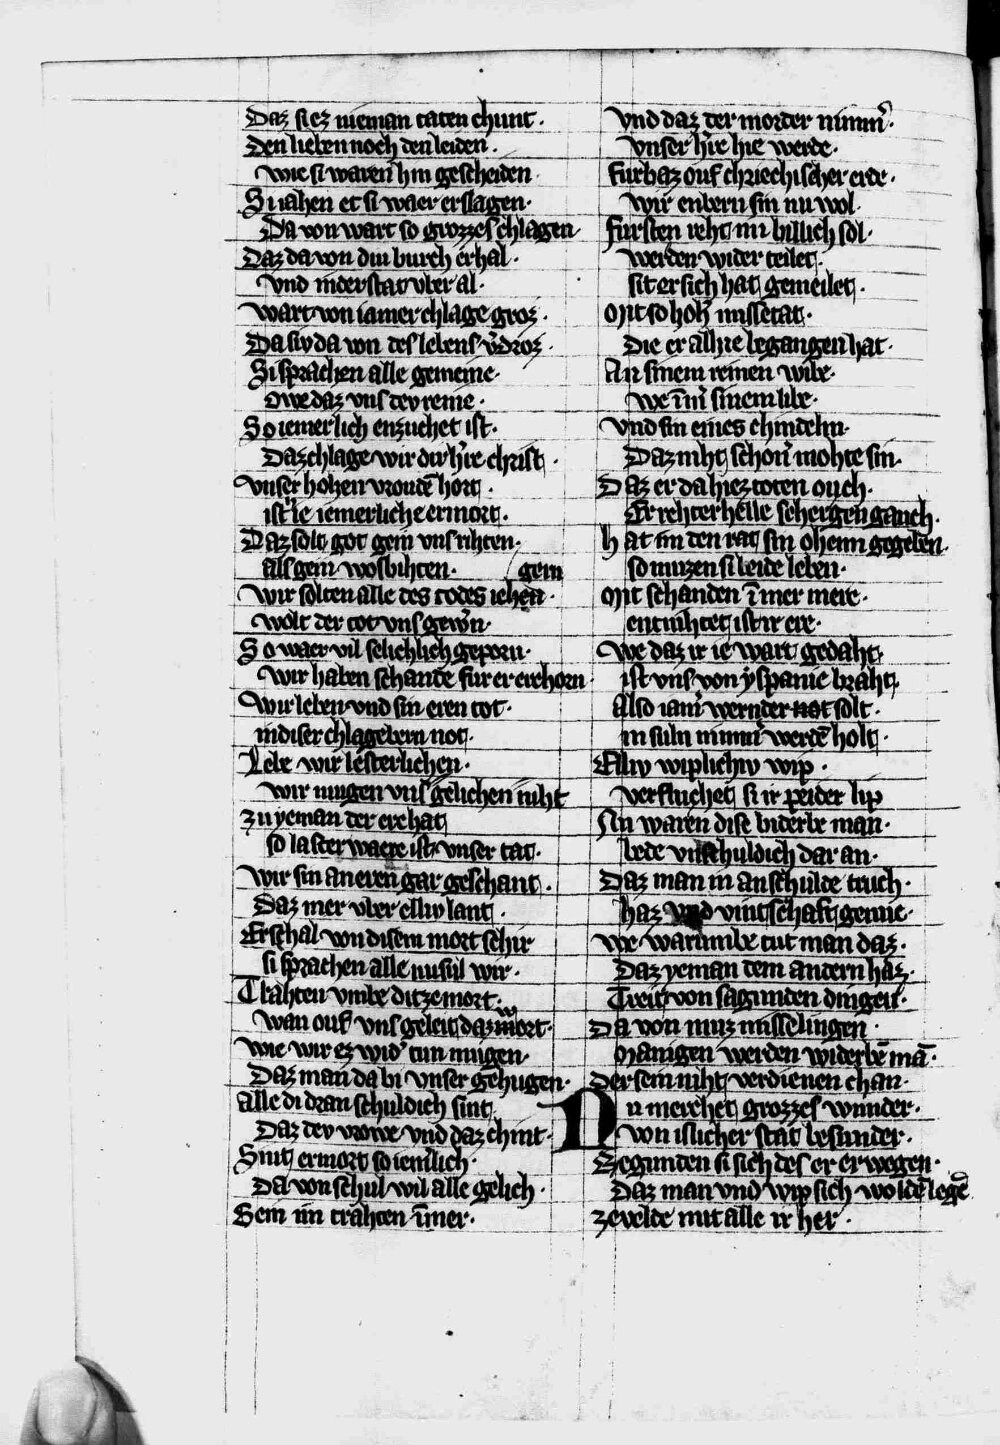 Daz si ez nieman taten chunt·
Den lieben noch den leiden·
wie si waren hin gescheiden
Si iahen et si waer erslagen·
Da von wart so grozzes chlagen·
Daz da von diu burch erhal·
vnd inder stat vber al·
wart von iamer chlage groz·
Da siv da von des lebens v̾droz·
Si sprachen alle gemeine·
owe daz vns dev reine·
So iemerlich enzuchet ist·
Daz chlage wir dir h̾re christ·
vnser hohen vroudē hort·
ist ie iemerliche ermort·
Daz solt got gern vns rihten·
als gern wos bihten· gern
wir solten alle des todes iehen·
wolt der tot vns gew̾n·
So waer vil selichlich geporn·
wir haben schande fur er erchorn·
wir leben vnd sin eren tot·
in diser chlagebern not·
Lebe wir lesterlichen·
wir mugen vns gelichen niht
zu yeman der ere hat
so lasterwaere ist vnser tat·
wir sin an eren gar geschant·
Daz mer vber elliv lant·
Erschal von disem mort schir
si sprachen alle nu sul wir·
Trahten vmbe ditze mort·
wan ouf vns geleit daz wort·
wie wir ez wid̾ tun mugen·
Daz man da bi vnser gehugen·
alle di dran schuldich sint
Daz dev vrowe vnd daz chint·
Sint ermort so iem̾lich·
Da von schul wil alle gelich·
Dem im trahten īmer·
vnd daz der morder nimm̾·
vnser h̾re hie werde·
furbaz ouf chriechischer erde·
wir enbern sin nu wol
fursten reht im billich sol·
werden wider teilet·
sit er sich hat gemeilet·
Mit so hoh̾ missetat·
Die er alhie begangen hat·
An sinem reinen wibe·
we īm̾ sinem libe·
vnd sin eines chindelin·
Daz niht schon̾ mohte sin·
Daz er da hiez toten ouch·
Er rehter helle schergen gauch·
hat im den rat sin oheim gegeben·
so muzen si beide leben·
Mit schanden īmer mere·
entnihtet ist ir ere·
We daz ir ie wart gedaht·
ist vns von yspanie braht·
Also iam̾ wernder not solt·
in suln nimm̾ werdē holt·
Elliv wiplichiv wip·
verfluchet si ir peider lip
Nu waren dise biderbe man·
bede vnschuldich dar an·
Daz man in an schulde truch·
haz vnd vintschaft genuc·
we warumbe tut man daz·
Daz yeman dem andern haz·
Treit von sagunden dingen·
Da von muz misselingen·
Manigen werden widerbē mā·
Der sein niht verdienen chan·
Nu merchet grozzes wunder·
von islicher stat besunder·
Begunden si sich des er erwegen·
Daz man vnd wip sich woldē legē
ze velde mit alle ir her·